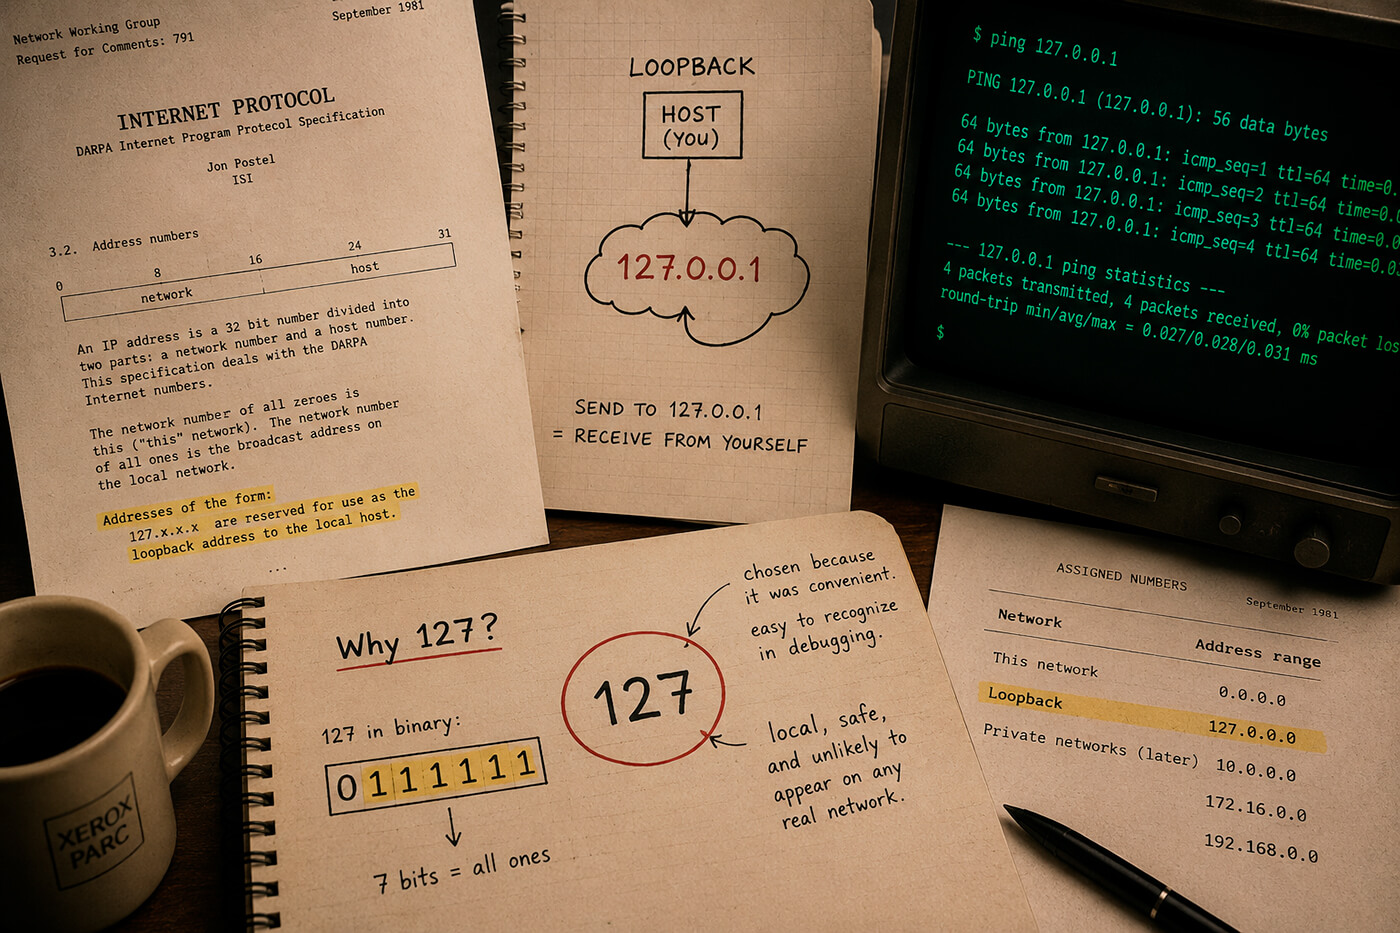 Network Working Group
Request for Comments: 791
September 1981
INTERNET PROTOCOL
DARPA Internet Program Protocol Specification
Jon Postel
ISI
3.2. Address numbers
0 8 16 24 31
network host
An IP address is a 32 bit number divided into
two parts: a network number and a host number.
This specification deals with the DARPA
Internet numbers.
The network number of all zeroes is
this ("this" network). The network number
of all ones is the broadcast address on
the local network.
Addresses of the form:
127.x.x.x are reserved for use as the
loopback address to the local host.
...
LOOPBACK
HOST
(YOU)
127.0.0.1
SEND TO 127.0.0.1
= RECEIVE FROM YOURSELF
$ ping 127.0.0.1
PING 127.0.0.1 (127.0.0.1): 56 data bytes
64 bytes from 127.0.0.1: icmp_seq=1 ttl=64 time=0.
64 bytes from 127.0.0.1: icmp_seq=2 ttl=64 time=0.0
64 bytes from 127.0.0.1: icmp_seq=3 ttl=64 time=0.0
64 bytes from 127.0.0.1: icmp_seq=4 ttl=64 time=0.0
--- 127.0.0.1 ping statistics ---
4 packets transmitted, 4 packets received, 0% packet los
round-trip min/avg/max = 0.027/0.028/0.031 ms
$
Why 127?
127 in binary:
0111111
7 bits = all ones
127
chosen because
it was convenient.
easy to recognize
in debugging.
local, safe,
and unlikely to
appear on any
real network.
ASSIGNED NUMBERS
September 1981
Network Address range
This network 0.0.0.0
Loopback 127.0.0.0
Private networks (later) 10.0.0.0
172.16.0.0
192.168.0.0
XEROX
PARC